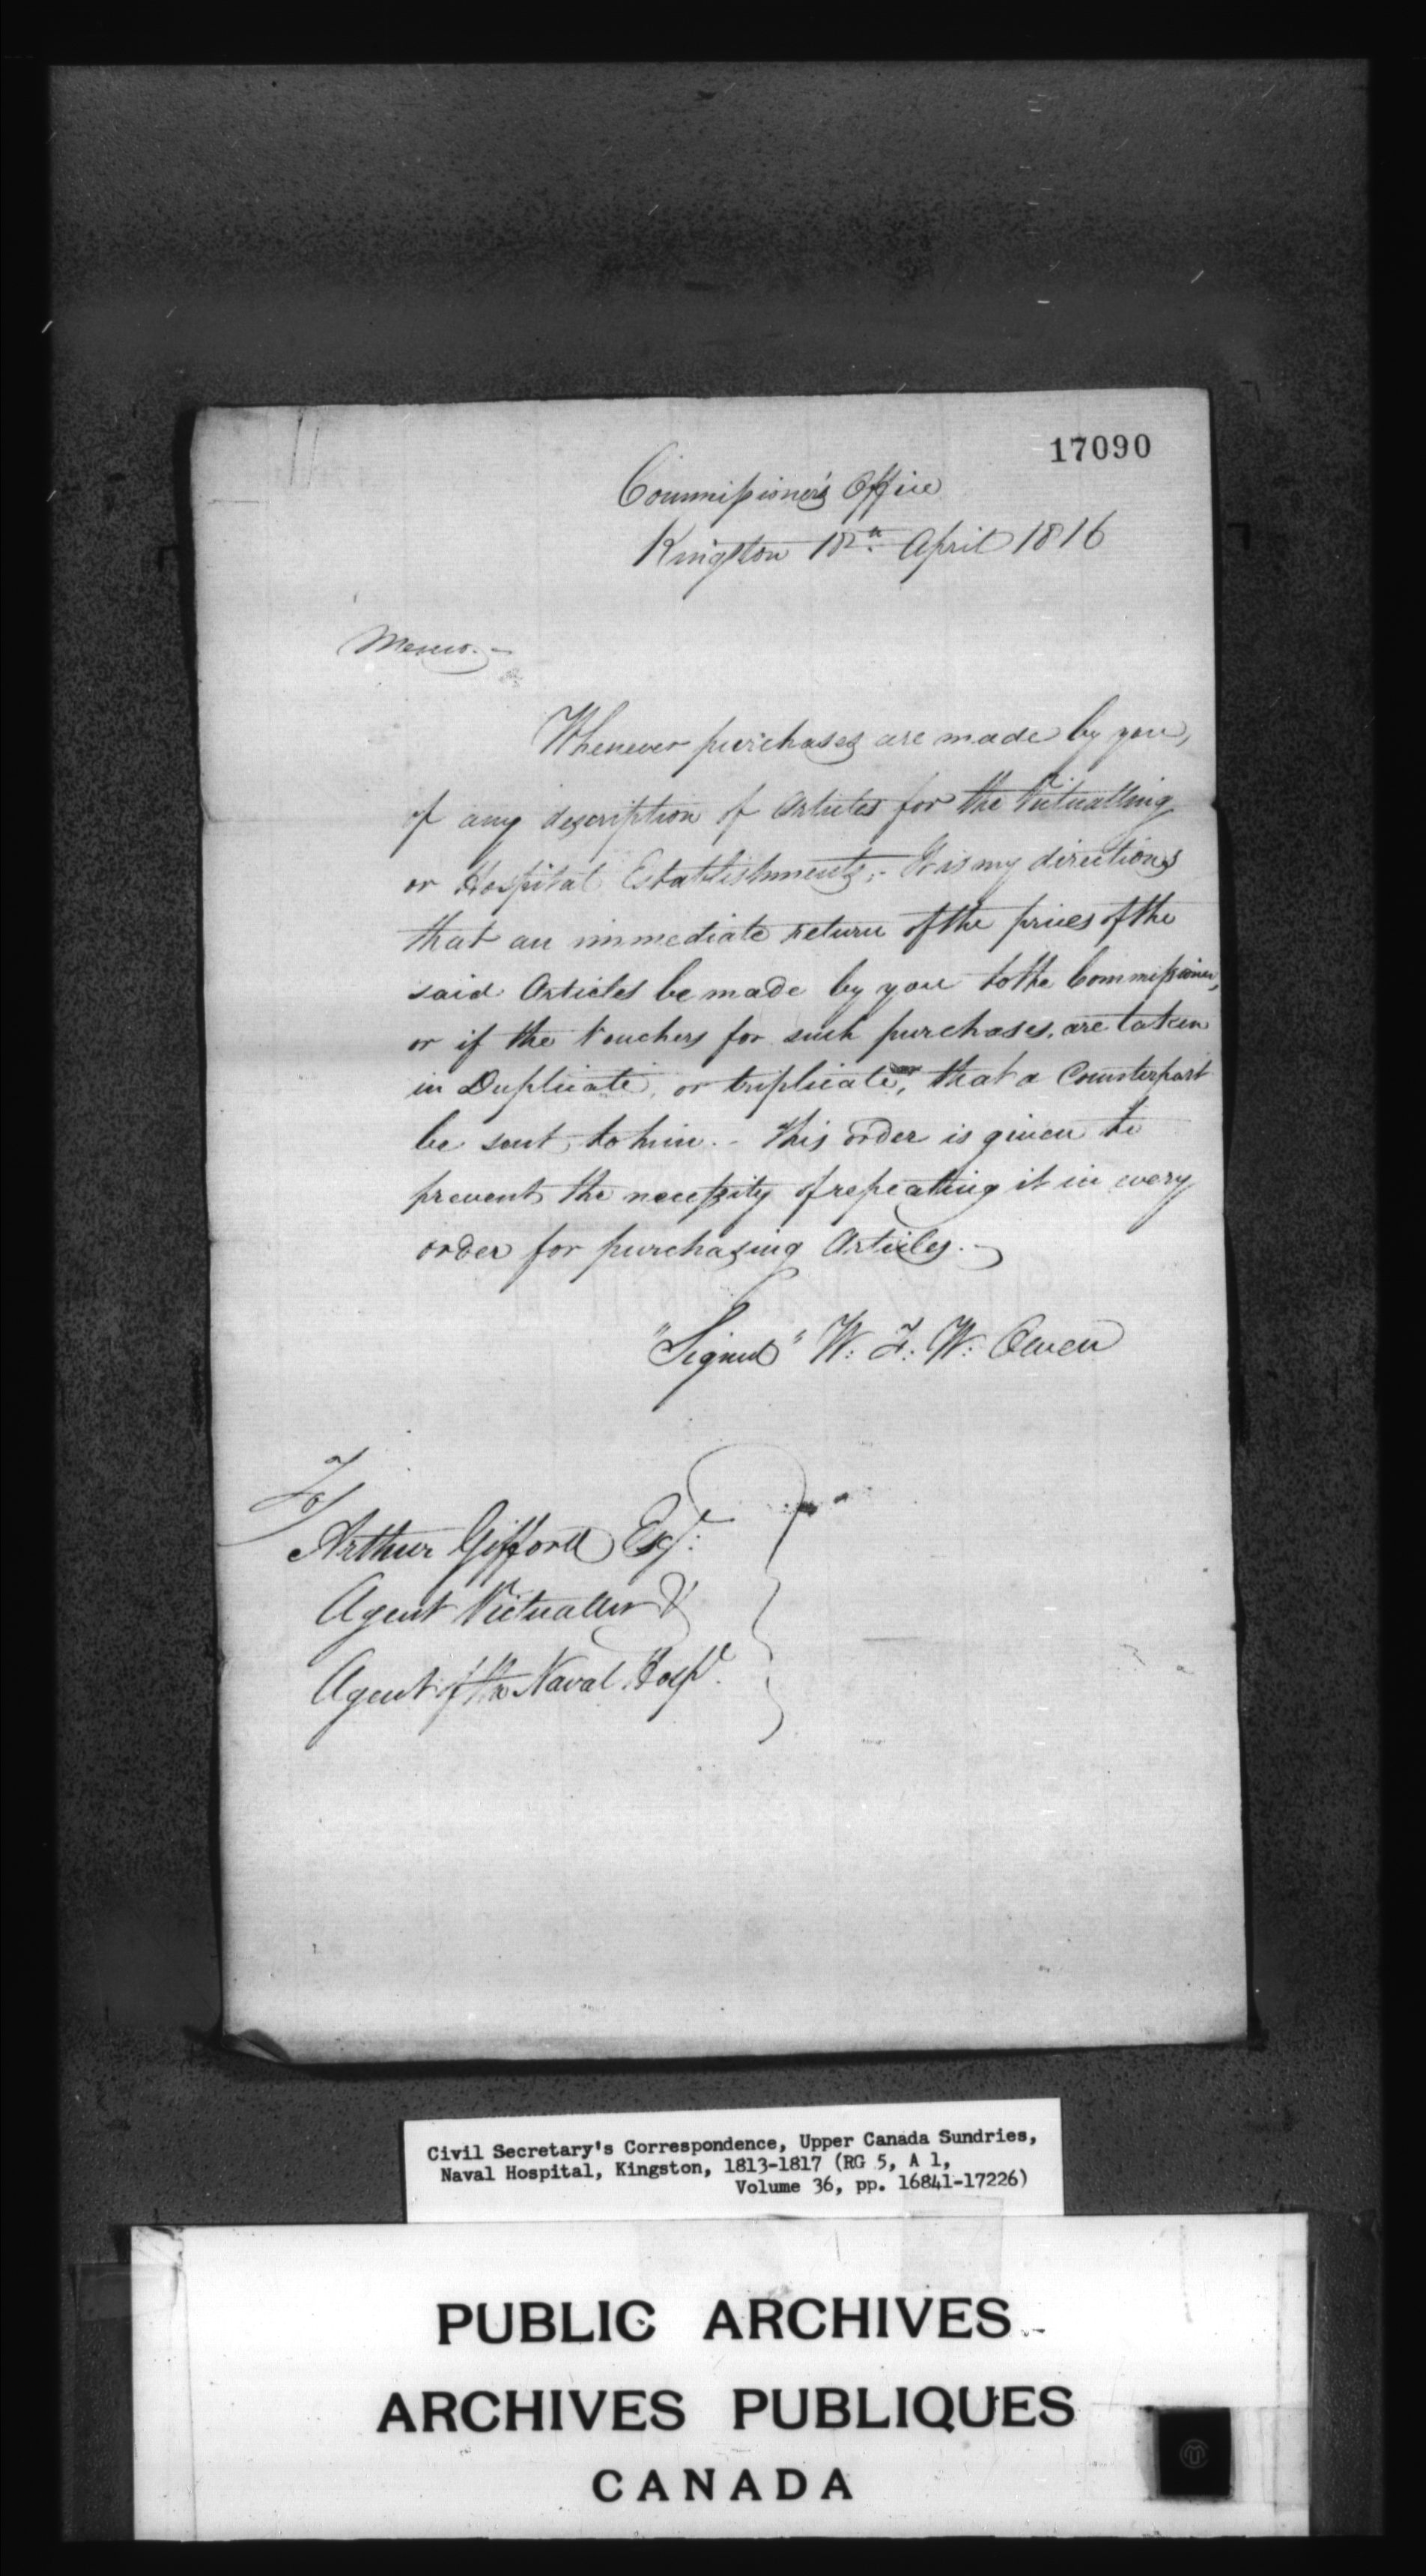 17090
Commissioner's Office
Kingston 18th April 1816
Memo. -
Whenever purchases are made by you,
of any description of Articles for the Victualling
or Hospital Establishments; - It is my directions
that an immediate return of the prices of the
said Articles be made by you to the Commissioner,
or if the Vouchers for such purchases, are taken
in Duplicate, or triplicate, that a Counterpart
be sent to him. - This order is given to
prevent the necessity of repeating it in every
order for purchasing Articles. -
"Signed" W: F: W: Owen
To
Arthur Gifford Esqr:
Agent Victualler &
Agent of the Naval Hospl.
Civil Secretary's Correspondence, Upper Canada Sundries,
Naval Hospital, Kingston, 1813-1817 (RG 5, A 1,
Volume 36, pp. 16841-17226)
PUBLIC ARCHIVES
ARCHIVES PUBLIQUES
CANADA